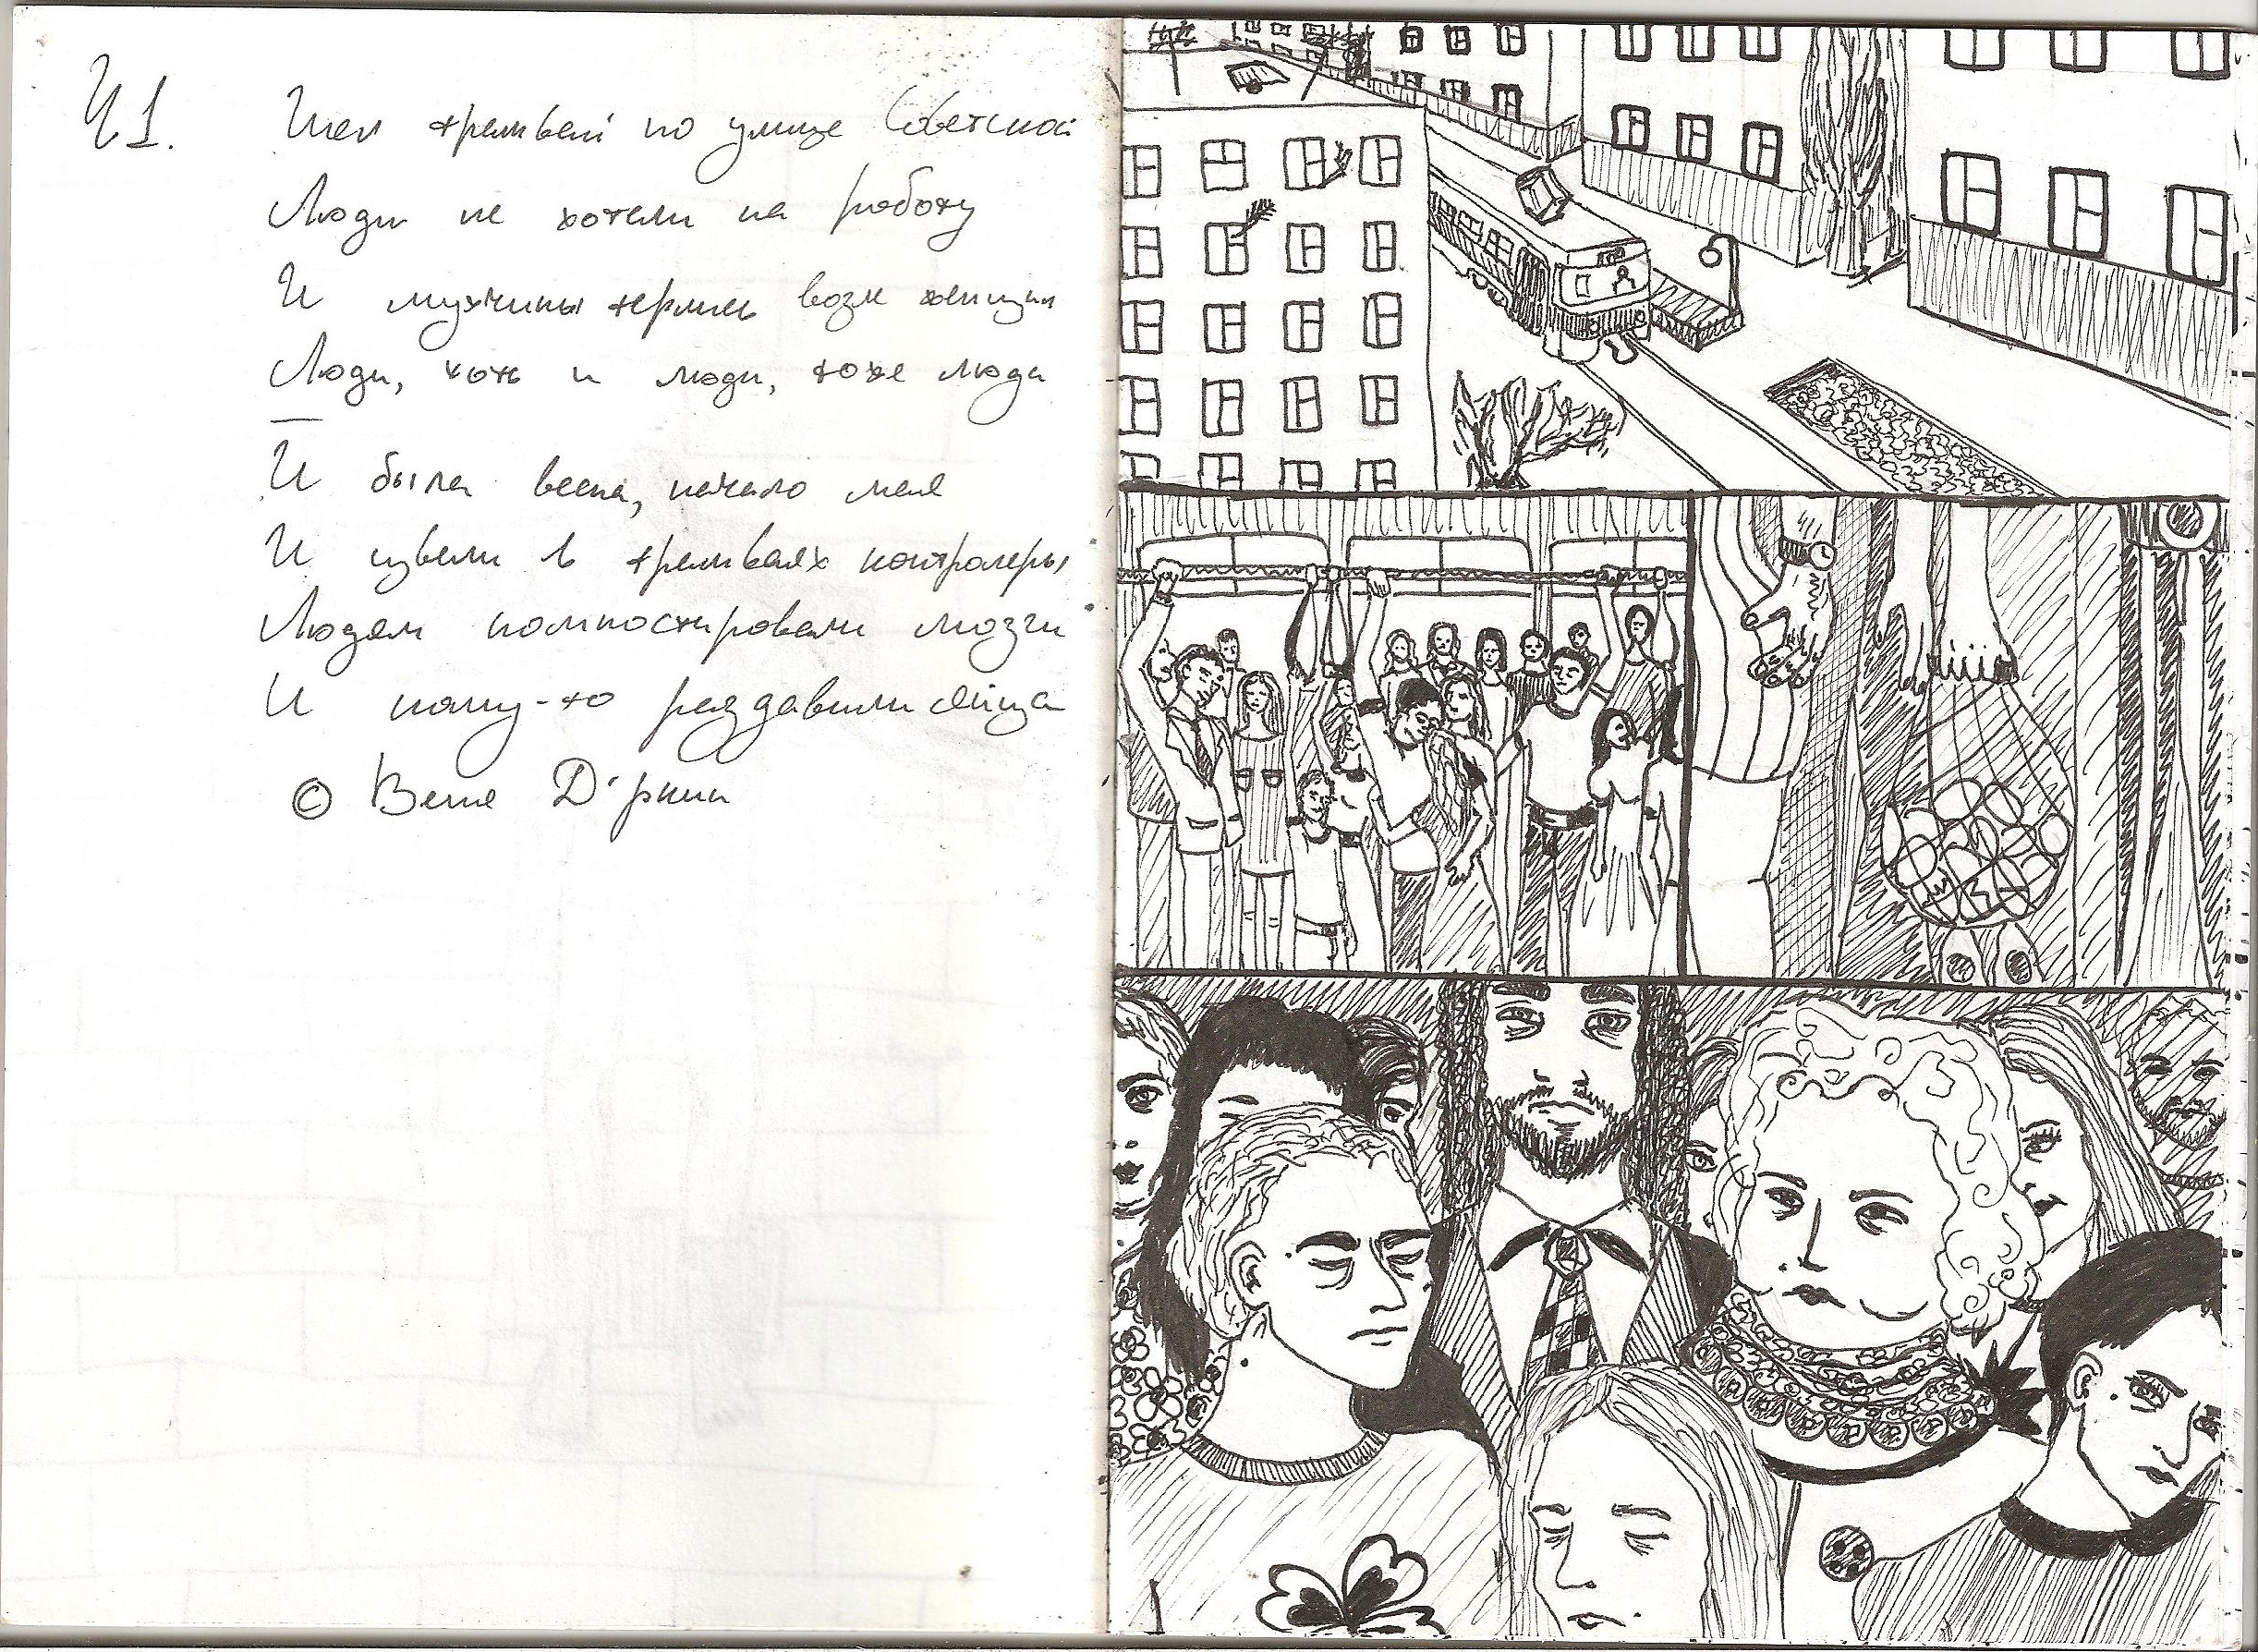 Ч1.
Шел трамвай по улице Советской
Люди не хотели на работу
И мужчины терлись возле женщин
Люди, хоть и люди, тоже люди
И была весна, начало мая
И цвели в трамваях контролеры
Людям компостировали мозги
И кому-то раздавили яйца
© Веня Д'ркин